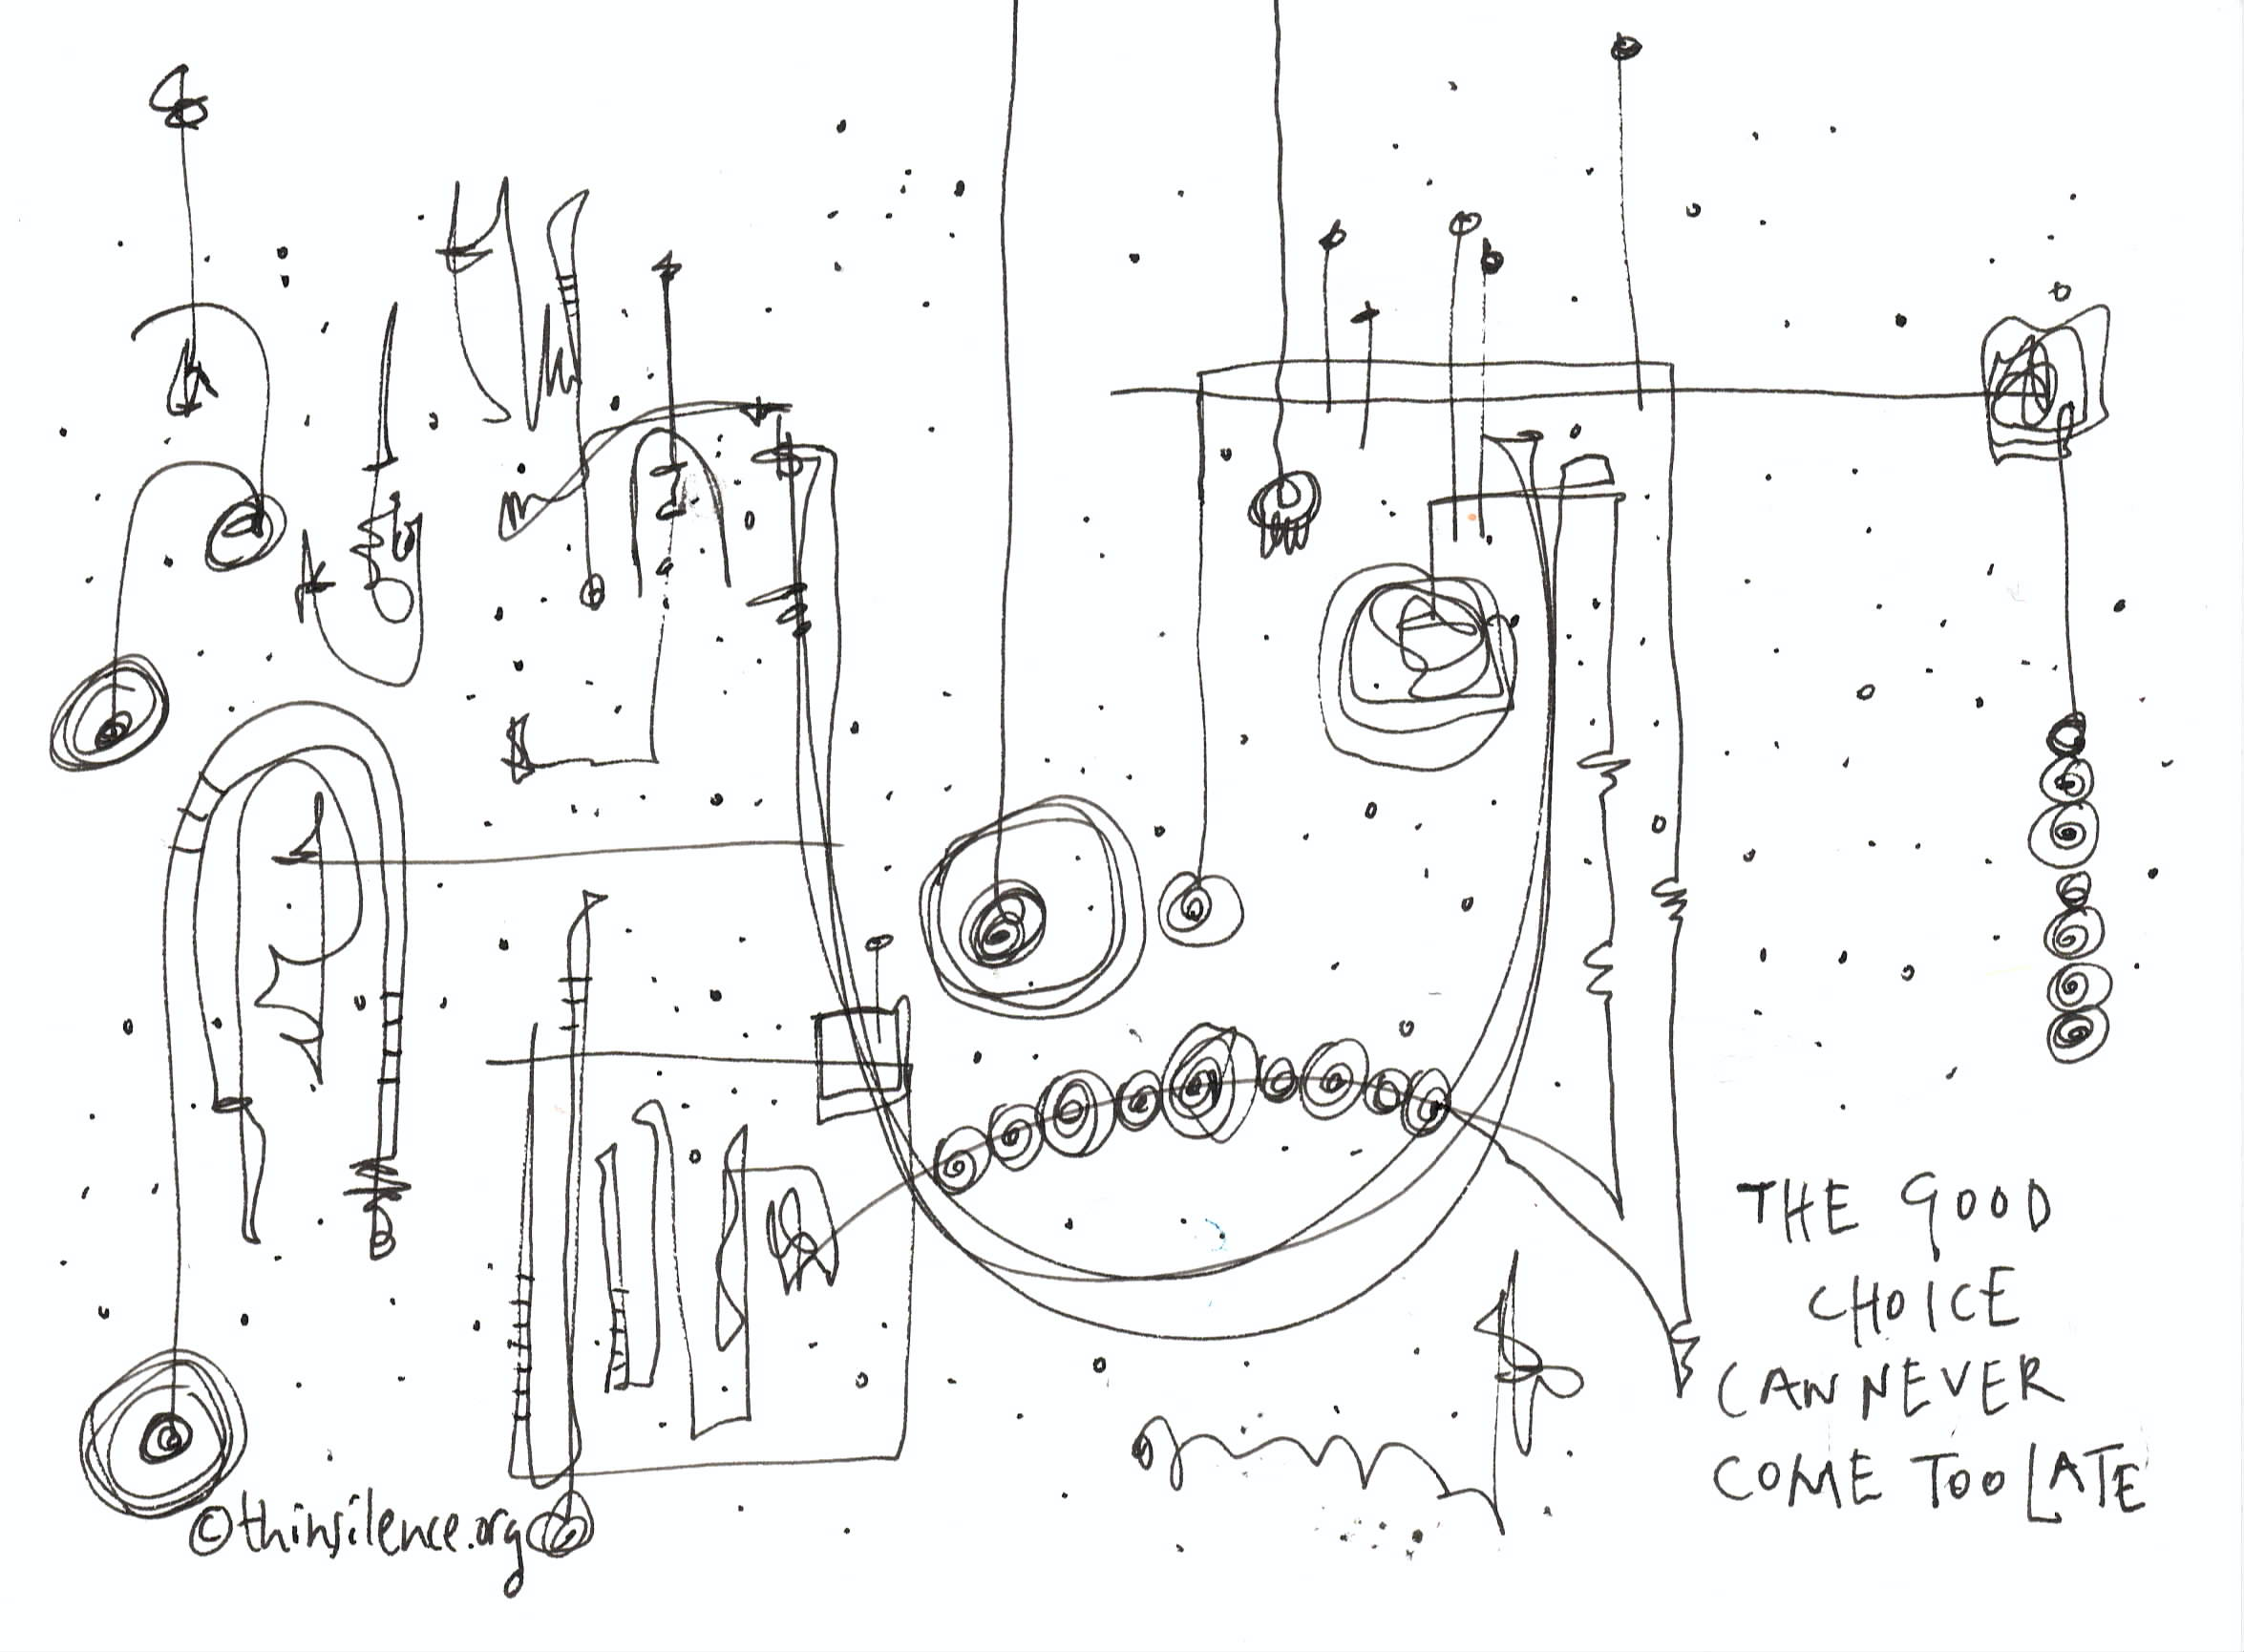 THE GOOD
CHOICE
CAN NEVER
COME TOO LATE
©thinsilence.org